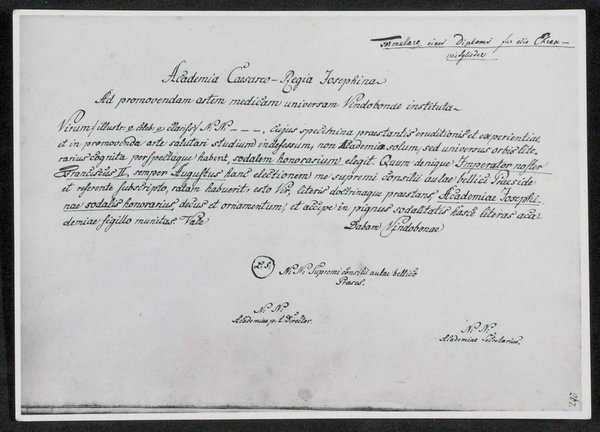 Formulare eines Diploms für die Ehren-
mitglieder
Academia Caesareo-Regia Josephina
Ad promovendam artem medicam universam Vindobonae instituta
Virum/illustr: v. celeb: v. clariss:/ N: N: - - - -. cujus specimina praestantis eruditionis et experientiae,
et in promovenda arte salutari studium indefessum, non Academia solum, sed universus orbis lite
rarius cognita perspectaque habent, sodalem honorarium elegit. Quum denique Imperator noster
Franciscus II, semper Augustus hanc electionem me supremi consilii aulae bellici Praeside
et referente subscripto, ratam habuerit: esto Vir, literis doctrinaque praestans, Academiae Josephi-
nae sodalis honorarius, decus et ornamentum, et accipe in pignus sodalitatis hasce literas aca
demiae sigillo munitas. Vale
Dabam Vindobonae
L: S: N: N: Supremi consilii aulae bellico
Praeses.
N: N:
Academiae p: t: Director.
N: N:
Academiae Secretarius.